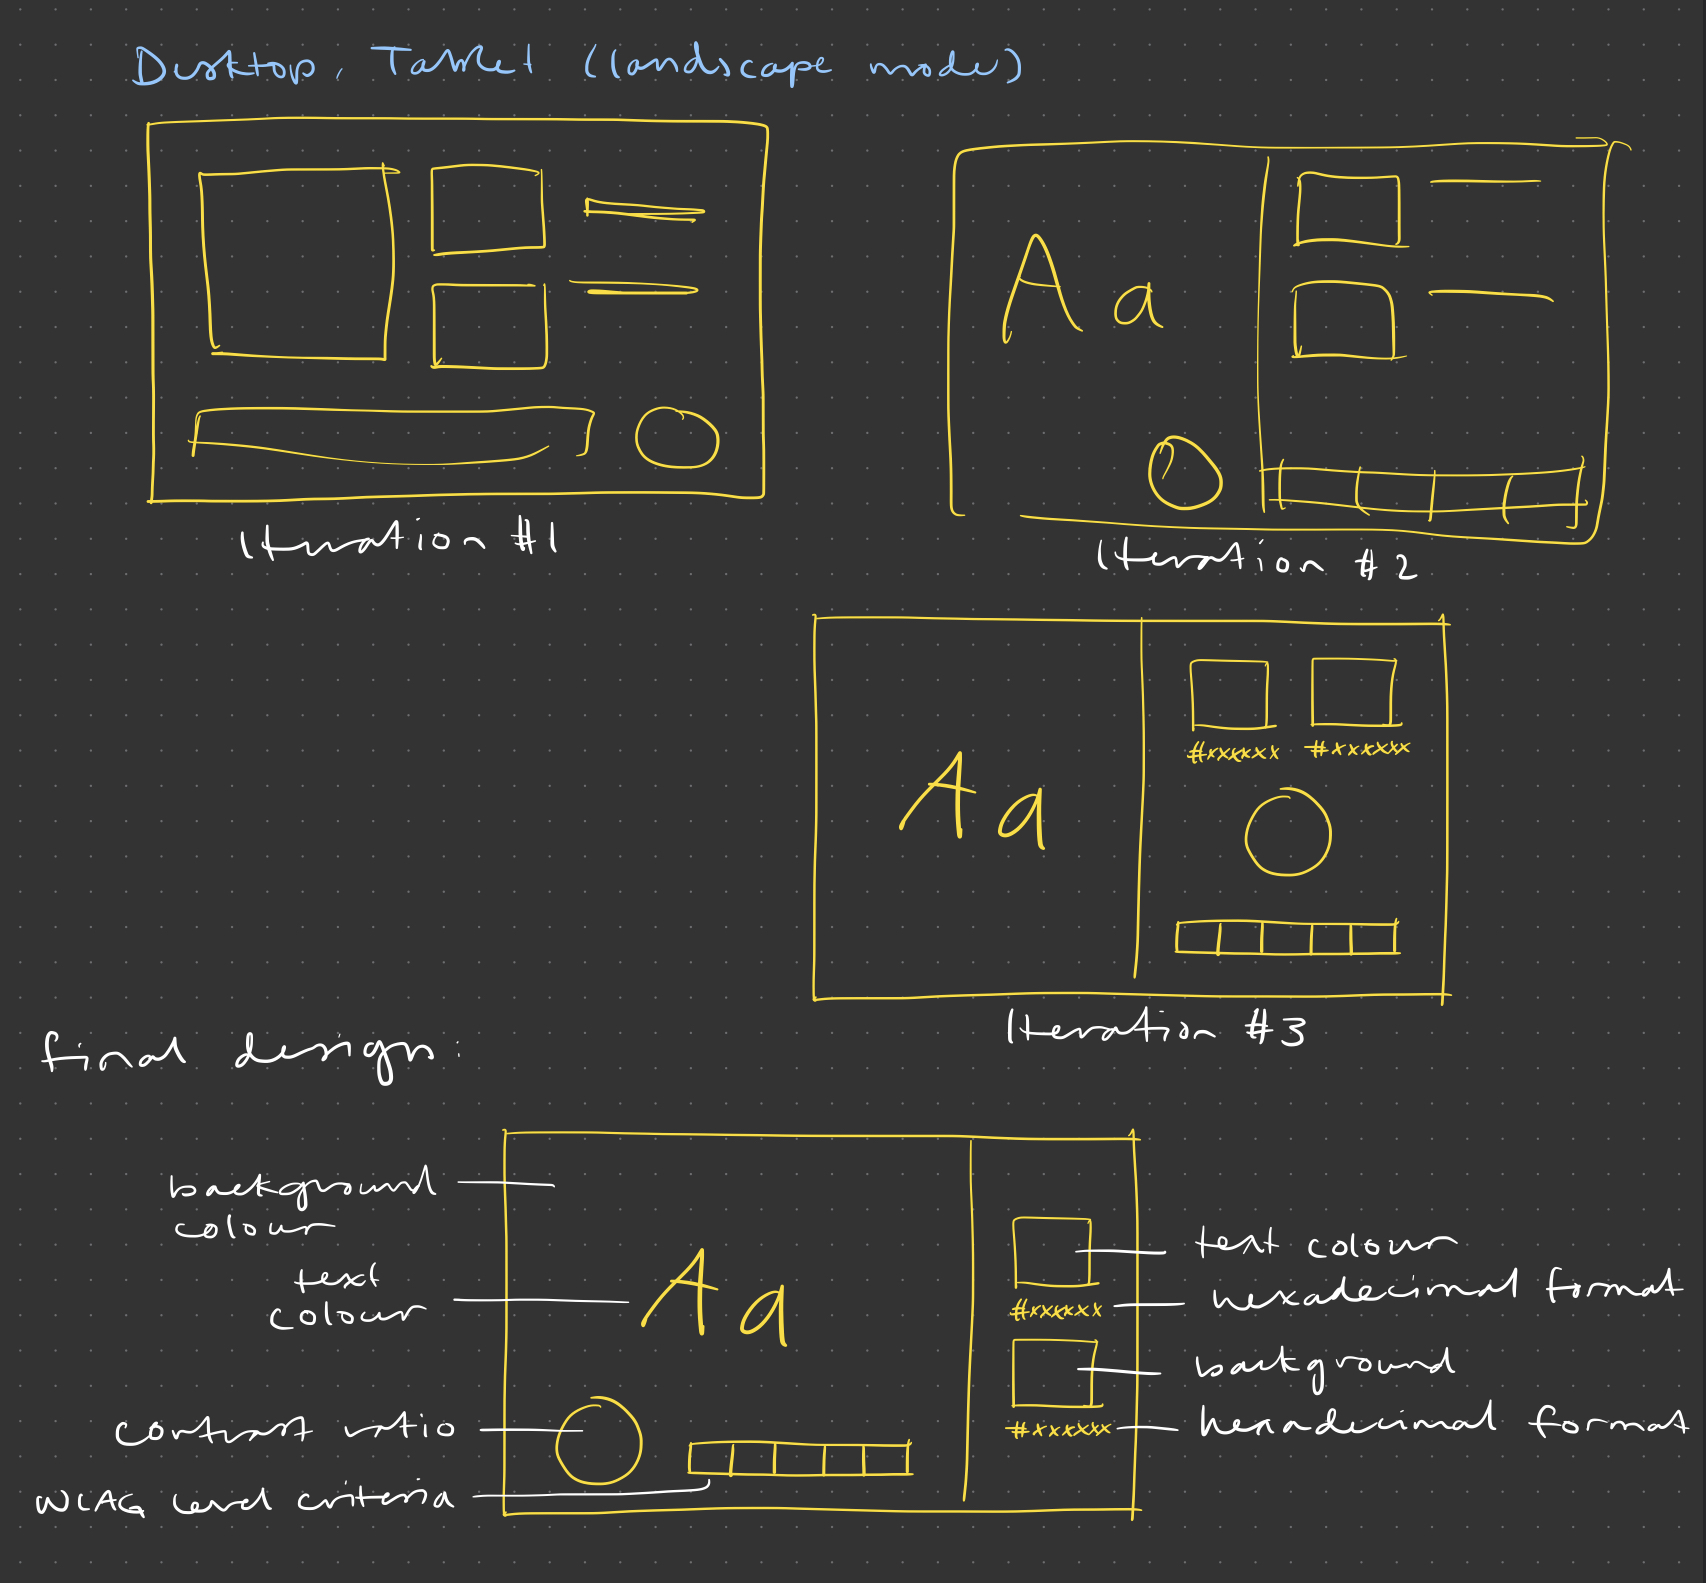 Desktop, Tablet (landscape mode)
Iteration #1
Aa
Iteration #2
#xxxxxx #xxxxxx
Aa
Iteration #3
final design:
background
colour
text
colour
Aa
contrast ratio
WCAG level criteria
text colour
#xxxxxx
hexadecimal format
background
#xxxxxx
hexadecimal format